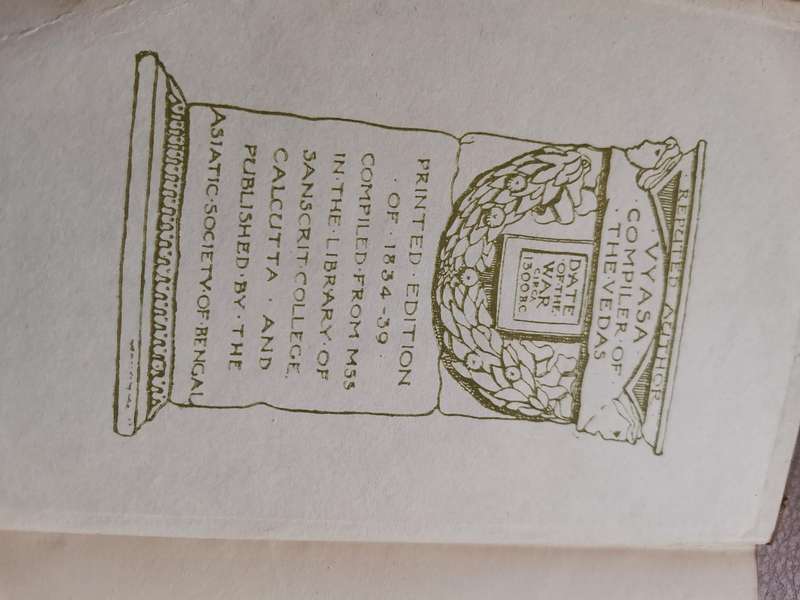 REPUTED AUTHOR
VYASA
COMPILER OF
THE VEDAS
DATE
OF THE
WAR
CIRCA
1300 BC
PRINTED · EDITION
· OF · 1834-39 ·
COMPILED · FROM MSS
IN · THE · LIBRARY · OF
SANSCRIT · COLLEGE
CALCUTTA · AND
PUBLISHED · BY · THE
ASIATIC · SOCIETY · OF · BENGAL